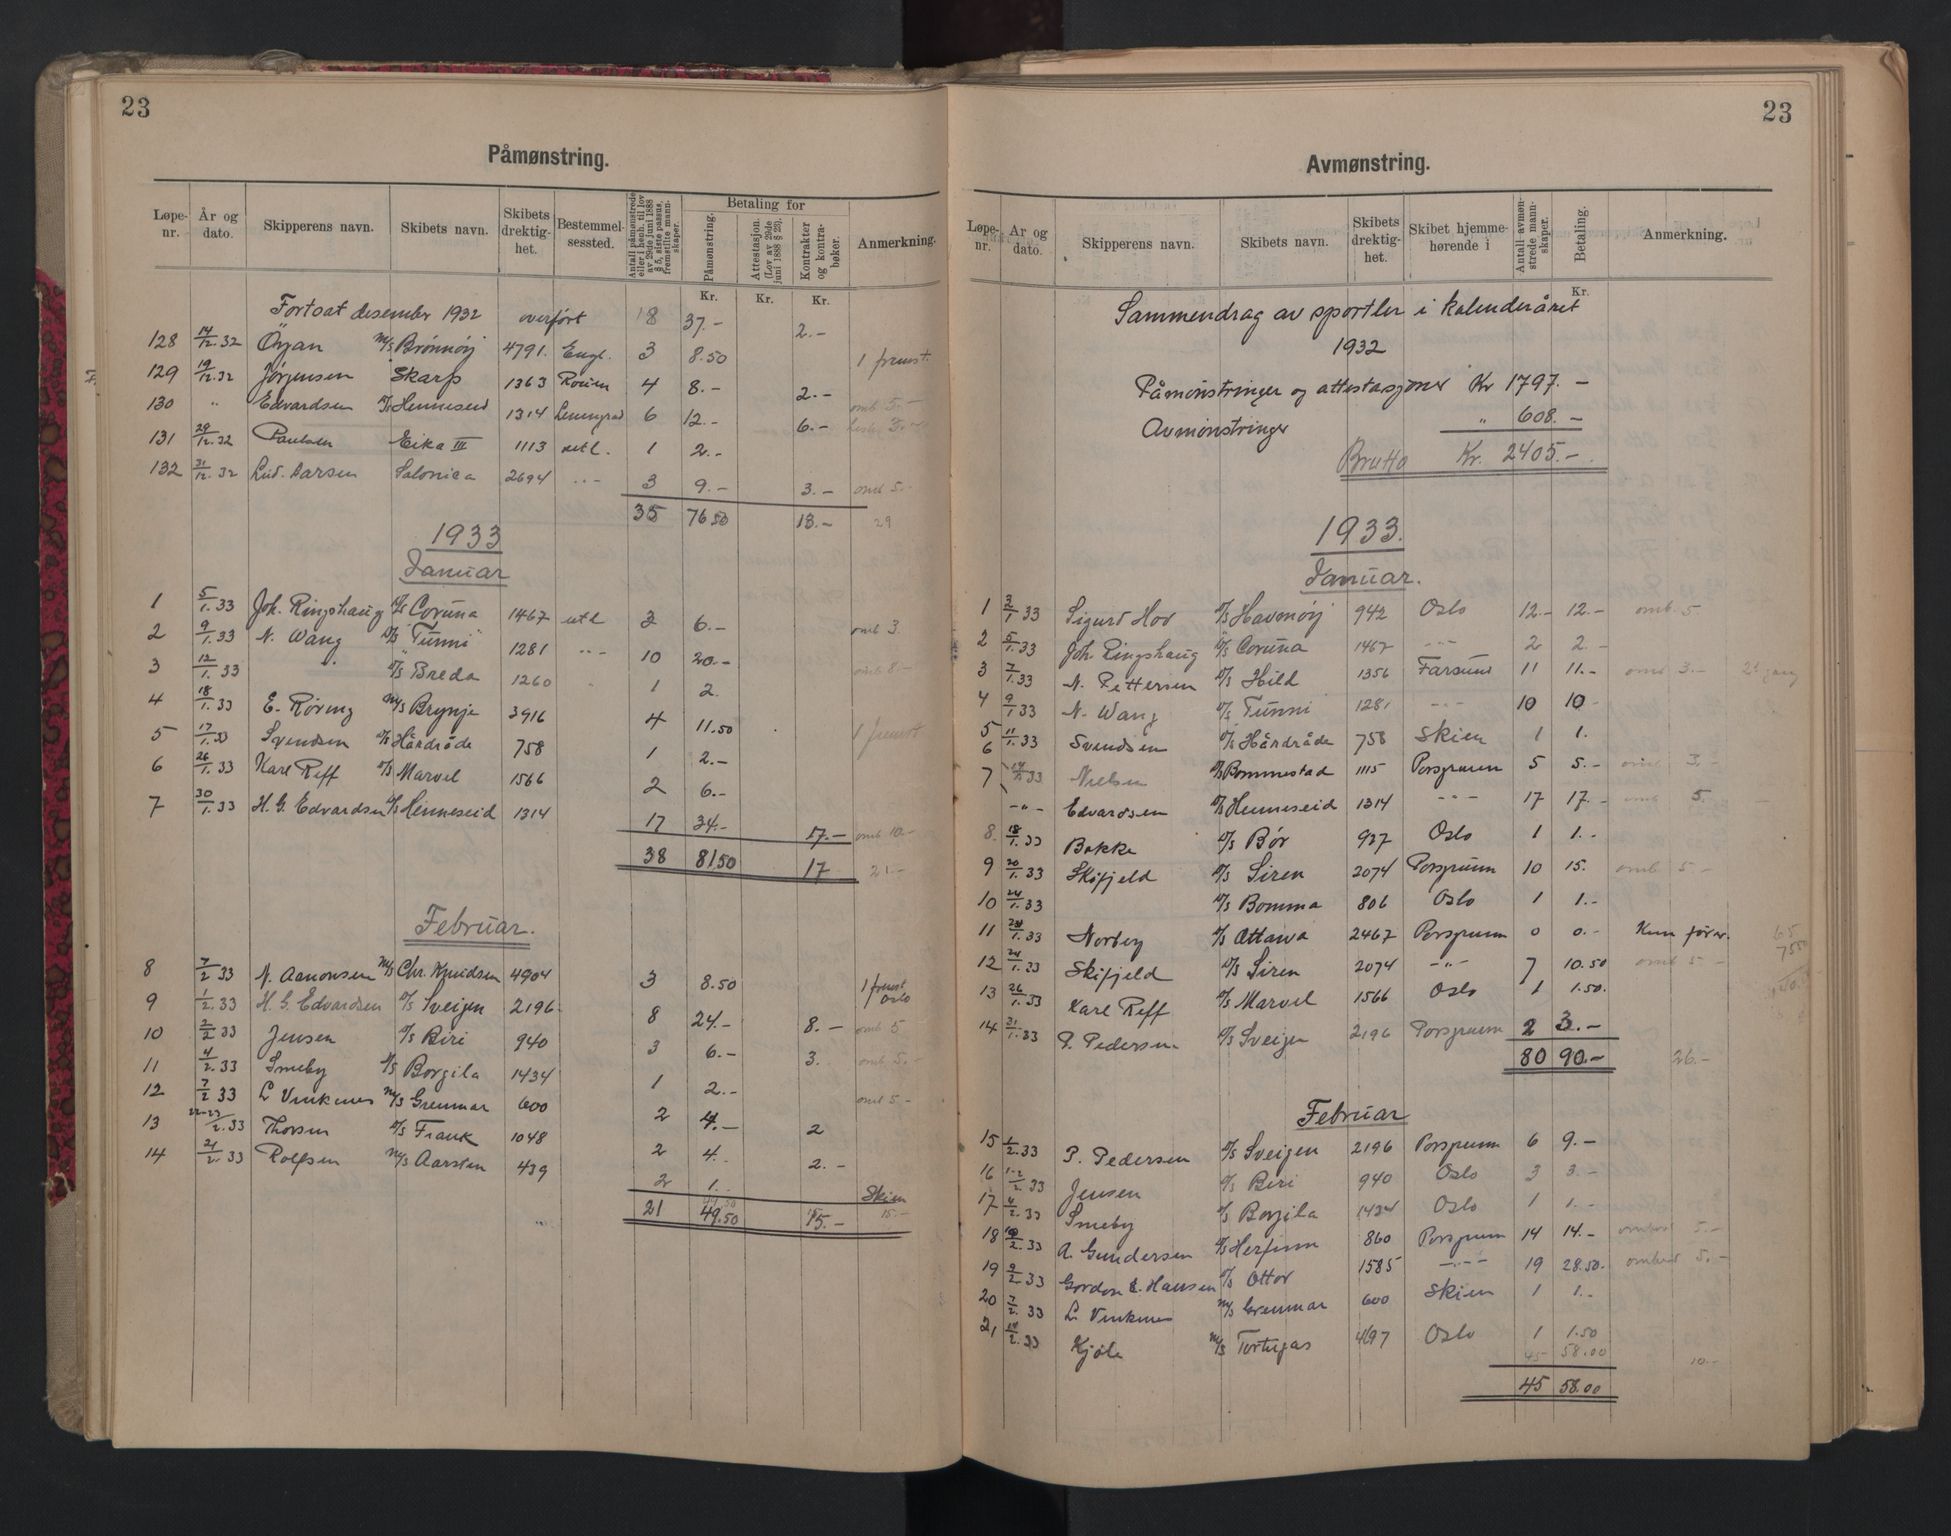 23
Påmønstring.
Løpe-nr. År og dato. Skipperens navn. Skibets navn. Skibets drektig-het. Bestemmel-sessted. Antall påmønstrede eller i henh. til lov av 29de juni 1888 § 5, siste passus, fremstilte mann-skaper. Betaling for Påmønstring. Attestasjon. (Lov av 29de juni 1888 § 28). Kontrakter og kontra-bøker. Anmerkning.
Kr. Kr. Kr.
Fortsat desember 1932 overført 18 37.- 2.-
128 14/12.32 Ørjan M/S Brönnöy 4791. Engl. 3 8.50 1 fremst.
129 19/12.32 Jørgensen Skarp 1363 Rouen 4 8.- 2.-
130 " Edvardsen D/S Henneseid 1314 Leningrad 6 12.- 6.- omb 5.-
131 29/12.32 Paulsen Eika III 1113 utl. 1 2.- 3.-
132 31/12.32 Lud. Larsen Salonica 2694 -"- 3 9.- 3.- omb 5.-
35 76.50 13.- 29
1933
Januar
1 5/1.33 Joh. Ringshaug D/S Coruna 1467 utl 3 6.-
2 9/1.33 N. Wang D/S "Tunni" 1281 -"- 10 20.- omb 3.
3 12/1.33 " D/S Breda 1260 " 1 2. omb 8.-
4 18/1.33 E. Røring M/S Brynje 3916 4 11.50 1 fremst
5 17/1.33 Svendsen D/S Hårdråde 758 1 2.-
6 26/1.33 Karl Reff D/S Marvel 1566 2 6.-
7 30/1.33 H. G. Edvardsen D/S Henneseid 1314 17 34.- 17.- omb 10.-
38 81.50 17 21.-
Februar.
8 7/2.33 N. Aamonsen M/S Chr. Knudsen 4904 3 8.50 1 fremst Oslo
9 1/2.33 H. G. Edvardsen D/S Sveigen 2196. 8 24.- 8.- omb 5
10 2/2.33 Jensen D/S Biri 940 3 6.- 3. omb 5.-
11 4/2.33 Smeby D/S Borgila 1434 1 2.-
12 7/2.33 L Vinknes M/S Grenmar 600 2 4.- 2 omb 5-
13 22-23/2.33 Thorsen D/S Frank 1048 2 4. 2.-
14 21/2.33 Rolfsen M/S Aarsten 439 2 1.- Skien
49.50
21 49.50 15.- 15.-
23
Avmønstring.
Løpe-nr. År og dato. Skipperens navn. Skibets navn. Skibets drektig-het. Skibet hjemme-hørende i Antall avmøn-strede mann-skaper. Betaling. Anmerkning.
Kr.
Sammendrag av sportler i kalenderåret
1932
Påmønstringer og attestasjoner Kr 1797.-
Avmønstringer " 608.-
Brutto Kr. 2405.-
1933.
Januar.
1 3/1 33 Sigurd Hov D/S Havnöy 942 Oslo 12.- 12.- omb. 5
2 5/1.33 Joh. Ringshaug D/S Coruna 1467 -"- 2 2.-
3 7/1.33 N. Pettersen D/S Hild 1356 Farsund 11 11.- omb 3.- 2 gang
4 9/1.33 N. Wang D/S Tunni 1281 -"- 10 10-
5 11/1.33 Svendsen D/S Hårdråde 758 Skien 1 1.
6
7 33 Nielsen D/S Bommestad 1115 Porsgrunn 5 5.- omb 3.-
-"- Edvardsen D/S Henneseid 1314 -"- 17 17.- omb 5.
8. 18/1.33 Bakke D/S Bör 937 Oslo 1 1.-
9 20/1.33 Skifjeld D/S Siren 2074 Porsgrunn 10 15. omb 5.-
10 24/1.33 D/S Bomma 806 Oslo 1 1.-
11 1.33 Norbey D/S Ottawa 2467 Porsgrunn 0 0.- Kun förer. 65
12 24/1.33 Skifjeld D/S Siren 2074 -"- 7 10.50 omb 5- 75
13 26/1.33 Karl Reff D/S Marvel 1566 Oslo 1 1.50.
14 31/1.33 P. Pedersen D/S Sveigen 2196 Porsgrunn 2 3.-
80 90.- 26.-
Februar
15 1/2.33 P. Pedersen D/S Sveigen 2196 Porsgrunn 6 9.-
16 1-2/2.33 Jensen D/S Biri 940 Oslo 3 3.-
17 4/2.33 Smeby D/S Borgila 1434 Oslo 1 1.-
18 2.33 A. Gundersen D/S Herfinn 860 Porsgrunn 14 14.- ombord 5.-
19 9/2.33 Gordon E. Hansen D/S Ottor 1585 -"- 19 28.50. ombord 5.-
20 7/2.33 L. Vinknes M/S Grenmar 600 Skien 1 1.-
21 14/2.33 Kjöle M/S Tortugas 4697 Oslo 1 1.50
45- 58.00 10.-
45 58.00